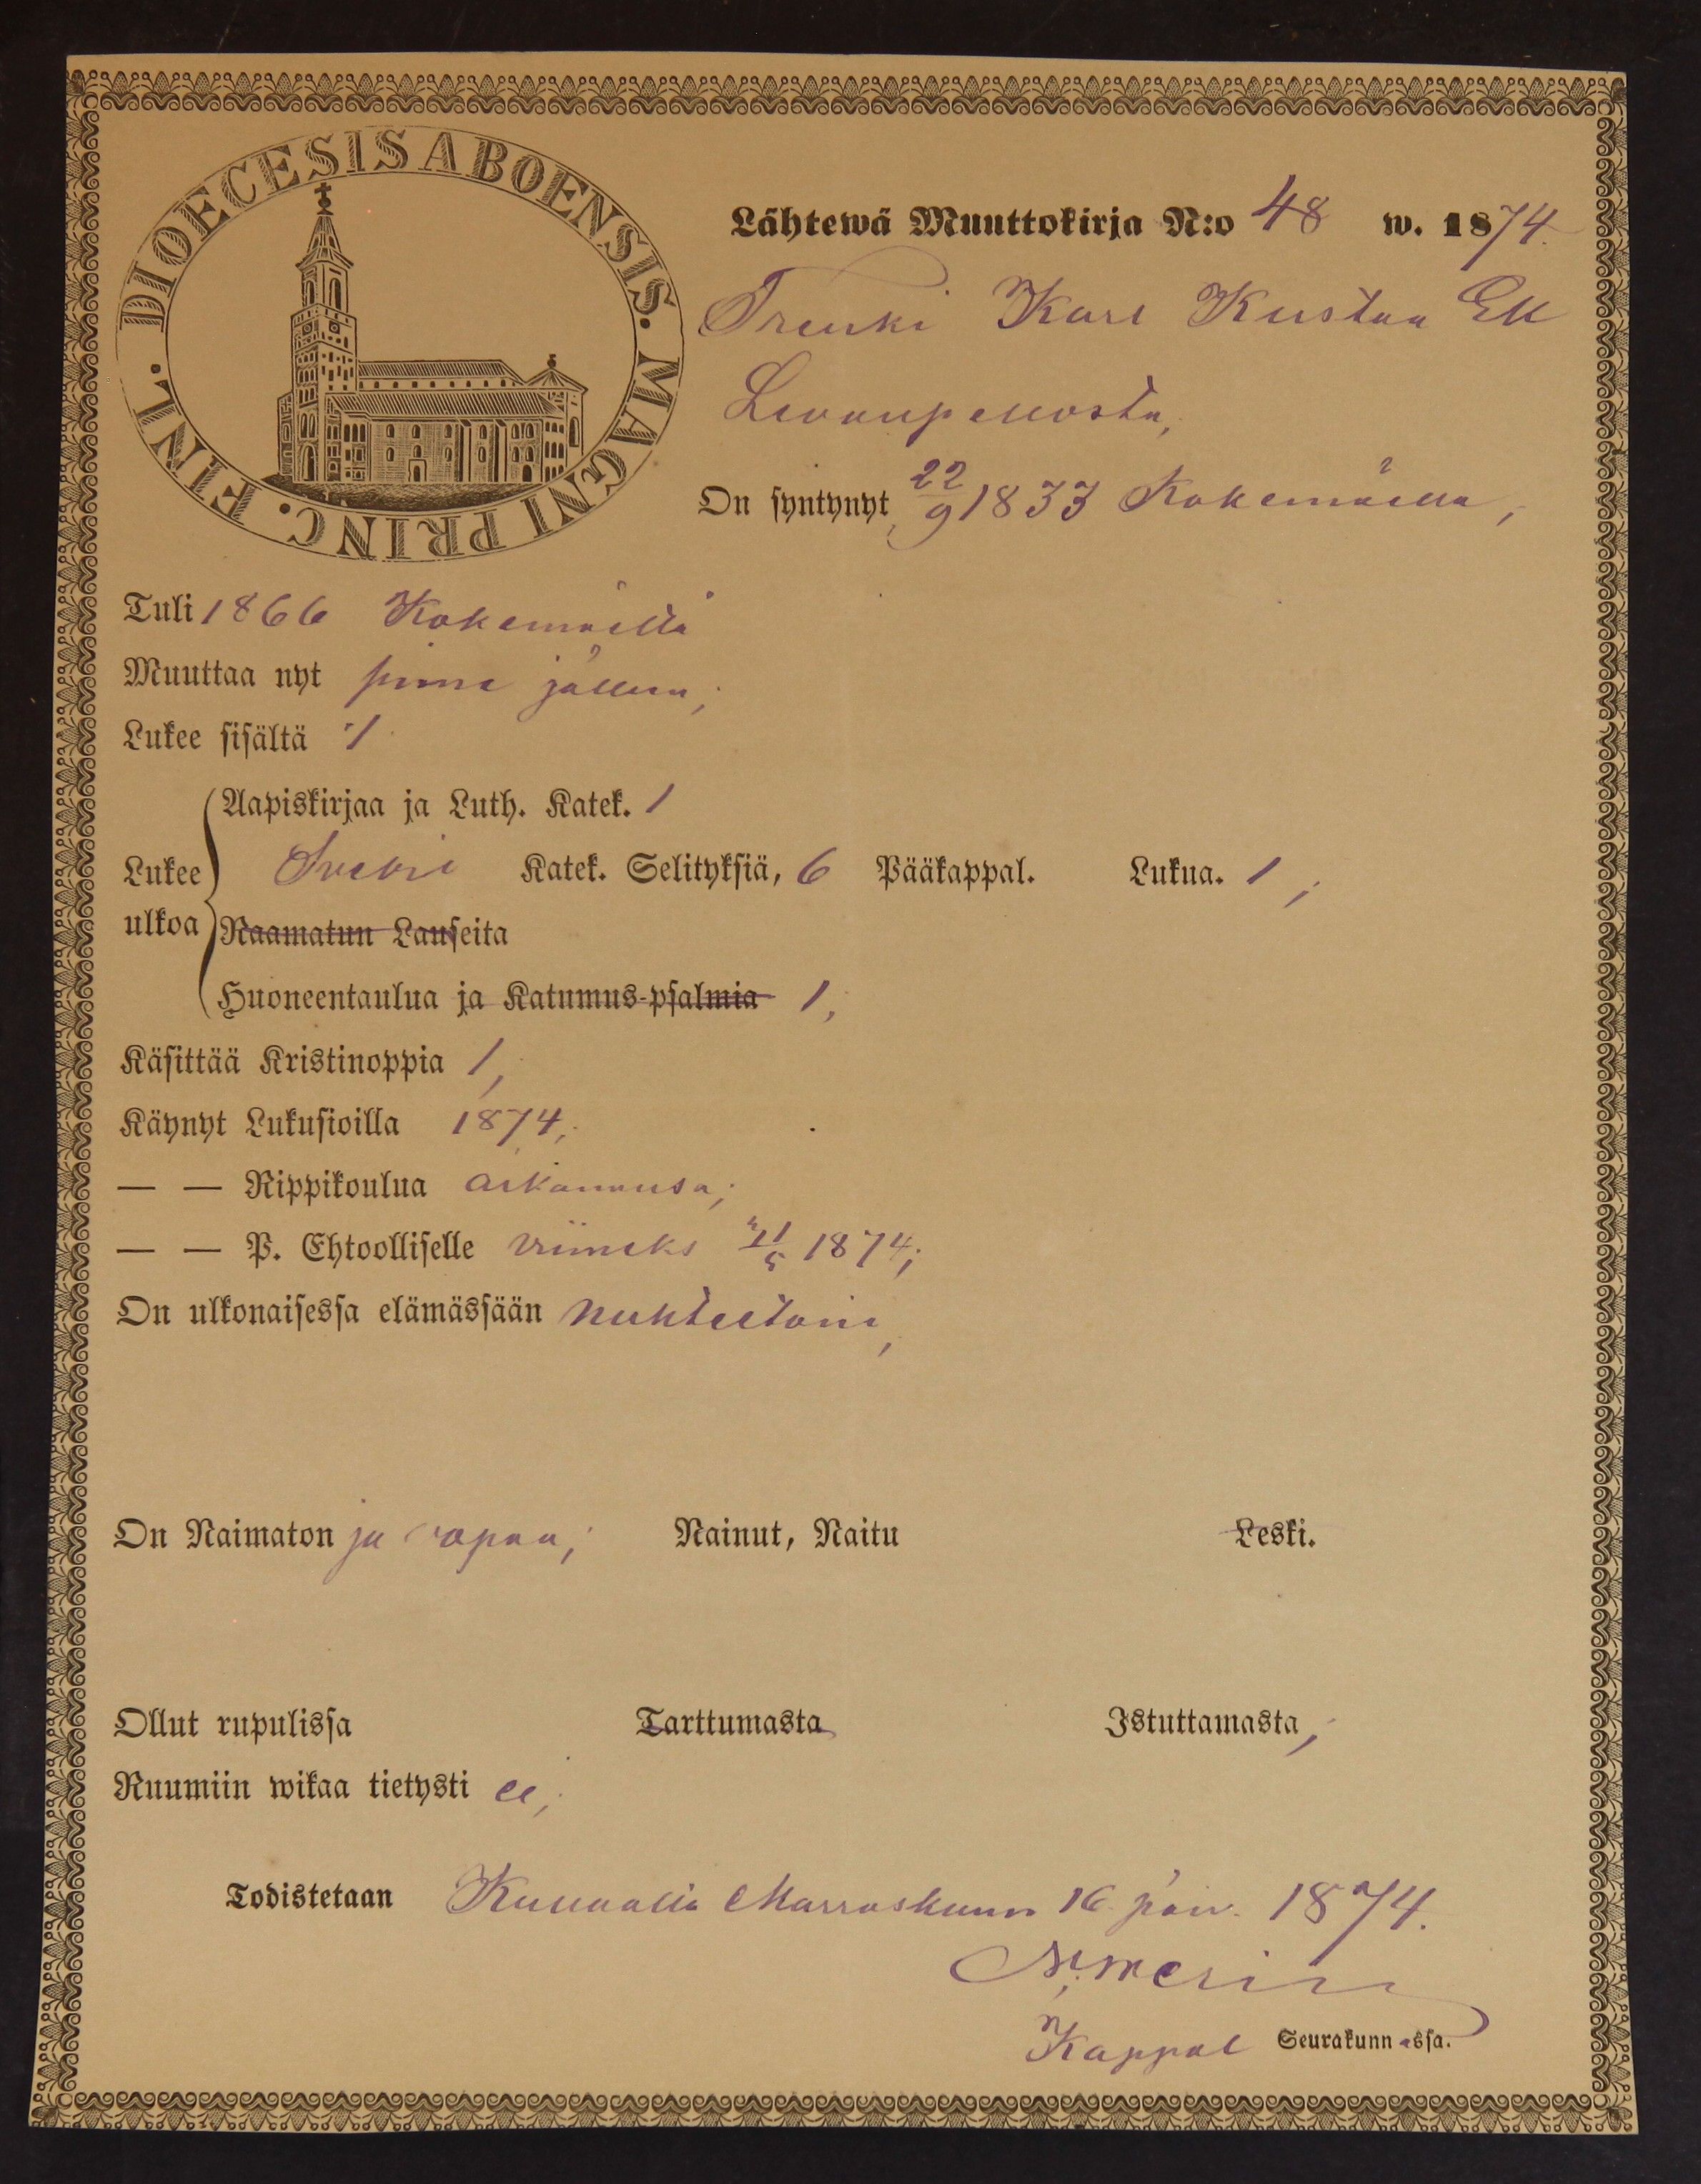 DIOECESIS ABOENSIS. MAGNI PRINC. FINL.
Lähtewä Muuttokirja N:o 48 w. 1874.
Trenki Karl Kustaa Ek
Levanpellosta,
On syntynyt 22/9 1833 Kokemäellä,
Tuli 1866 Kokemäeltä
Muuttaa nyt sinne jälleen,
Lukee sisältä 1
Aapiskirjaa ja Luth. Katek. 1
Lukee ulkoa Svebil Katek. Selityksiä, 6 Pääkappal. Lukua. 1;
Raamatun Lauseita
Huoneentaulua ja Katumus-psalmia 1,
Käsittää Kristinoppia 1,
Käynyt Lukusioilla 1874,
— — Rippikoulua aikanansa;
— — P. Ehtoolliselle viimeks 11/5 1874;
On ulkonaisessa elämässään nuhteetoin,
On Naimaton ja vapaa; Nainut, Naitu Leski.
Ollut rupulissa Tarttumasta Istuttamasta,
Ruumiin wikaa tietysti ei,
Todistetaan Kullaalla Marraskuun 16 päiv. 1874.
Kappal Seurakunnassa.